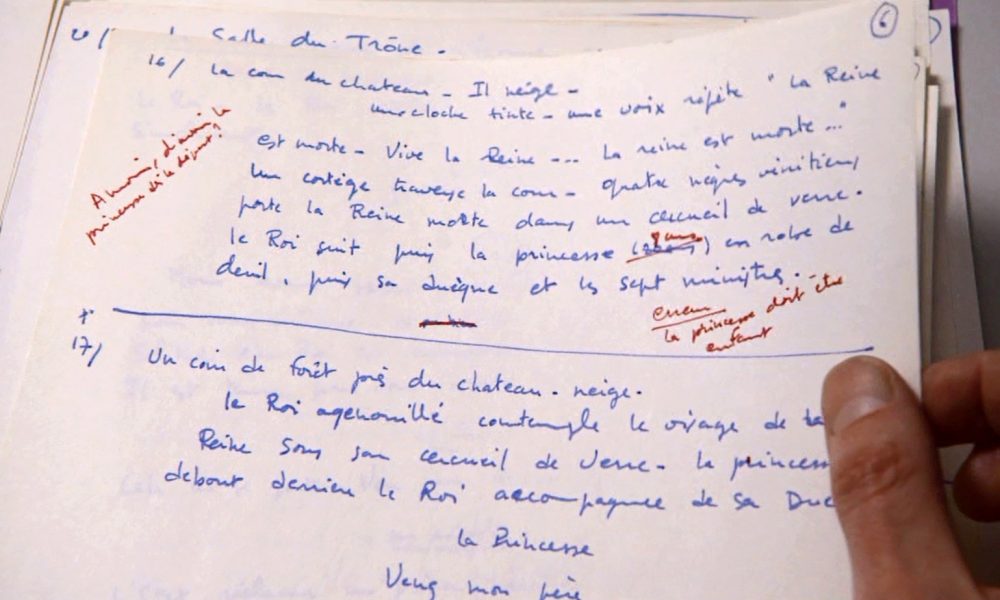 6
la Salle du Trône.
16/ la cour du chateau - Il neige -
une cloche tinte - une voix répète "La Reine
est morte - Vive la Reine --- La reine est morte..."
Un cortège traverse la cour - quatre nègres vénitiens
porte la Reine morte dans un cercueil de verre.
le Roi suit puis la princesse ( ans) en robe de
deuil, puis sa duègne et les sept ministres.
A moins, de la
princesse dès le départ?
erreur
la princesse doit être
enfant
17/ Un coin de forêt près du chateau - neige.
le Roi agenouillé contemple le visage de la
Reine sous son cercueil de verre - la princess
debout derrière le Roi accompagnée de sa Duè
la Princesse
Venez mon père